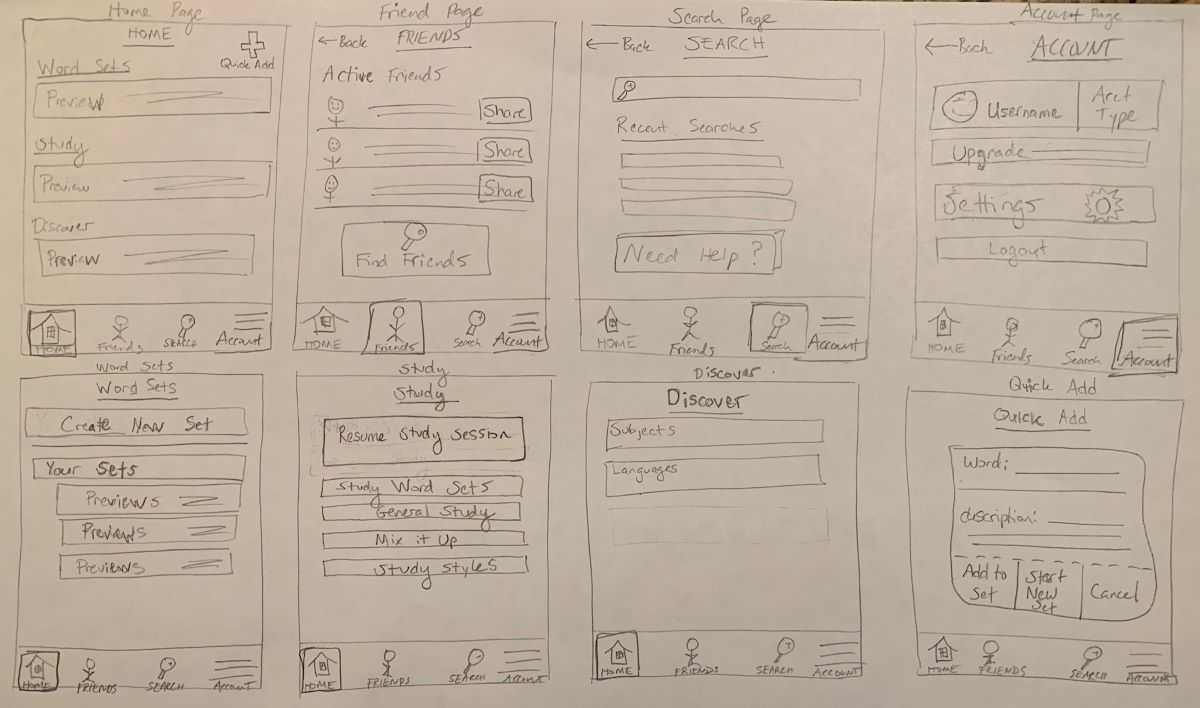 Home Page
HOME
Quick Add
Word Sets
Preview
Study
Preview
Discover
Preview
HOME Friends SEARCH Account
Friend Page
← Back FRIENDS
Active Friends
Share
Share
Share
Find Friends
HOME Friends Search Account
Search Page
← Back SEARCH
Recent Searches
Need Help?
HOME Friends Search Account
Account Page
← Back ACCOUNT
Username
Acct
Type
Upgrade
Settings
Logout
HOME Friends Search Account
Word Sets
Word Sets
Create New Set
Your Sets
Previews
Previews
Previews
HOME FRIENDS SEARCH Account
Study
Study
Resume Study Session
Study Word Sets
General Study
Mix it Up
Study Styles
HOME FRIENDS SEARCH Account
Discover
Discover
Subjects
Languages
HOME FRIENDS SEARCH Account
Quick Add
Quick Add
Word:
description:
Add to
Set
Start
New
Set
Cancel
HOME FRIENDS SEARCH Account